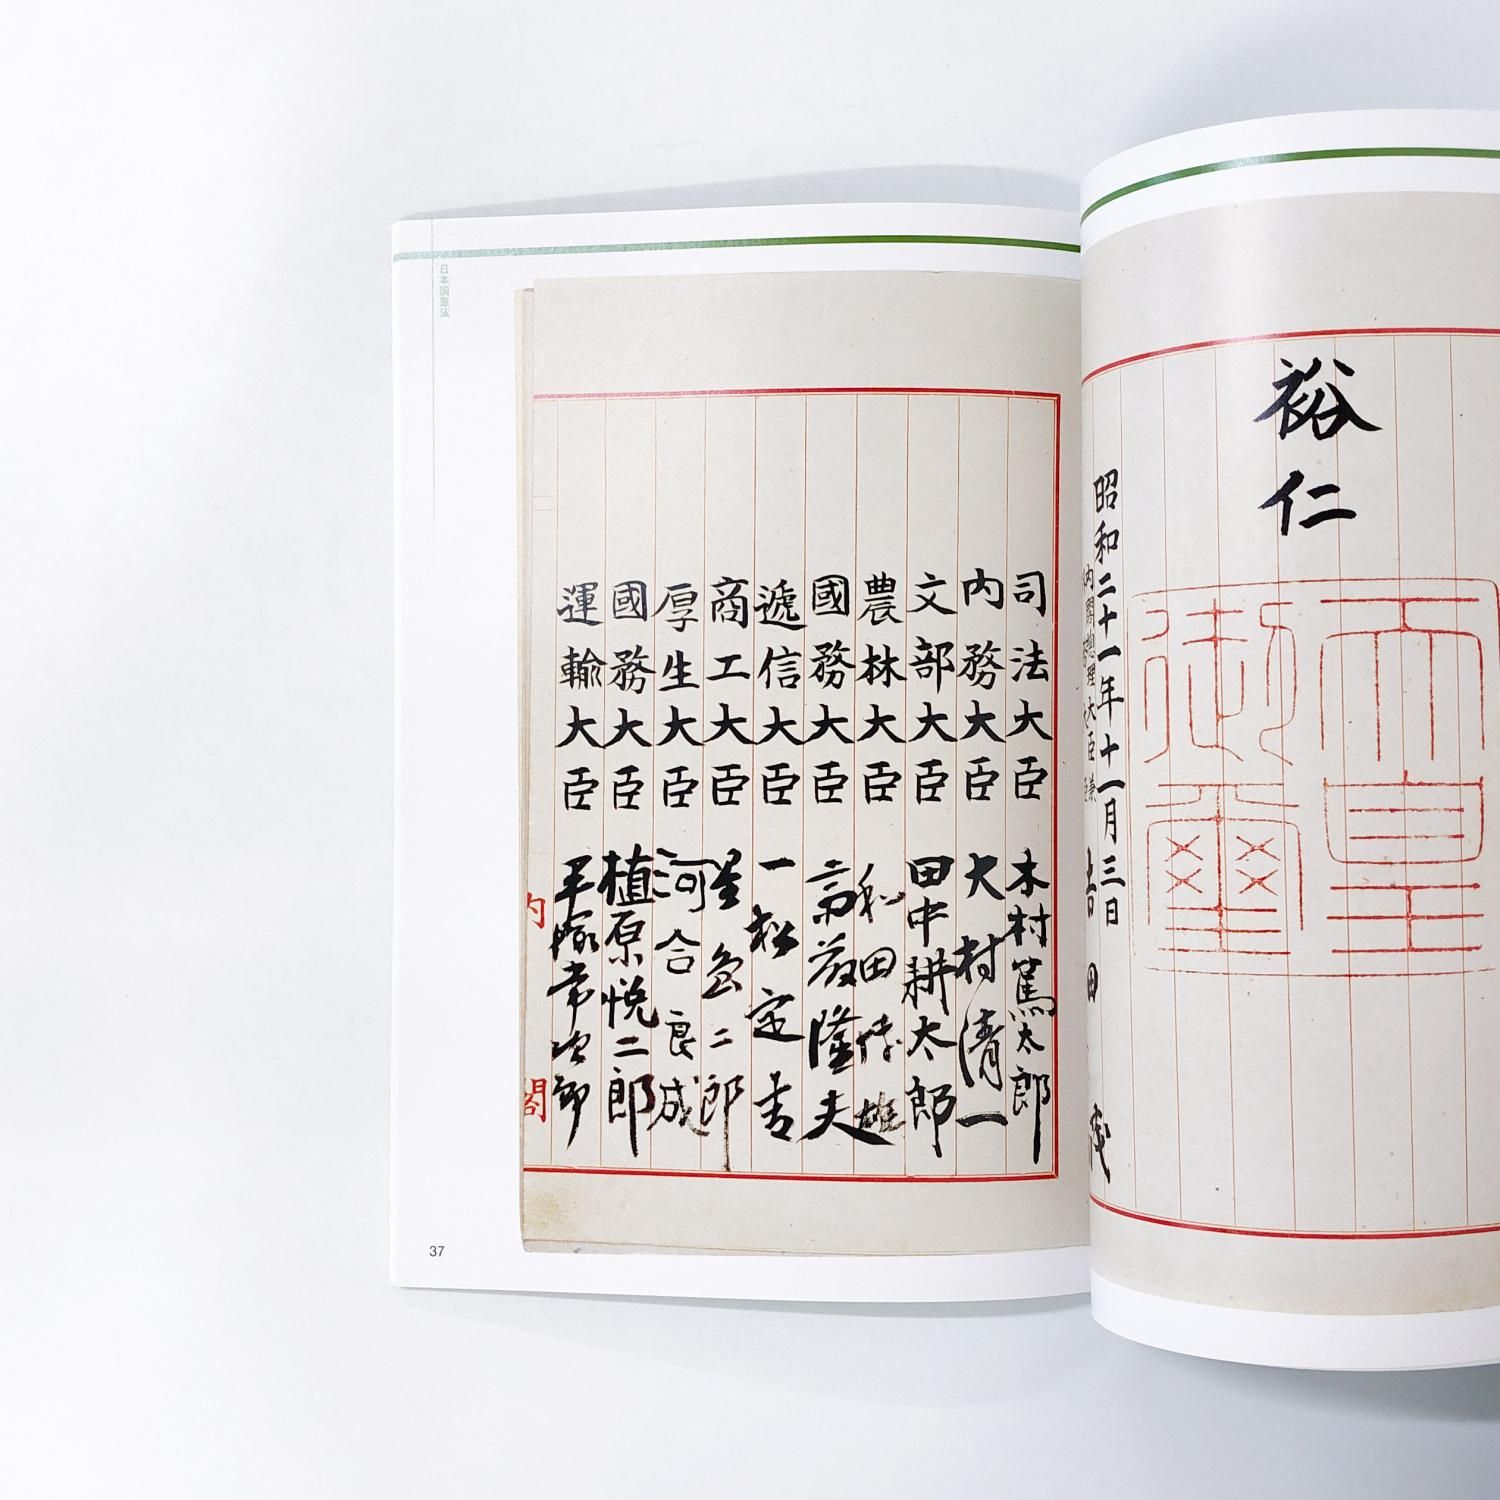 裕仁
天皇
御璽
昭和二十一年十一月三日
内閣総理大臣兼
吉田茂
司法大臣 木村篤太郎
内務大臣 大村清一
文部大臣 田中耕太郎
農林大臣 和田博雄
國務大臣 斎藤隆夫
遞信大臣 一松定吉
商工大臣 星島二郎
厚生大臣 河合良成
國務大臣 植原悦二郎
運輸大臣 平塚常次郎
内閣
日本国憲法
37